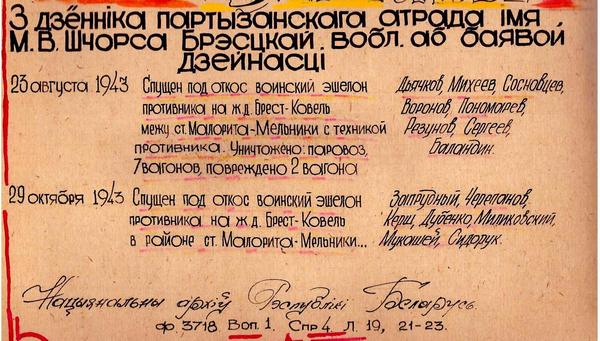 З дзённіка партызанскага атрада імя
М.В. Шчорса Брэсцкай вобл. аб баявой
дзейнасці
23 августа 1943 Спущен под откос воинский эшелон Дьячков, Михеев, Сосновцев,
противника на ж.д. Брест-Ковель Воронов, Пономарев,
межу ст. Малорита-Мельники с техникой Резунов, Сергеев,
противника. Уничтожено: паровоз, Баландин.
7 вагонов, повреждено 2 вагона
29 октября 1943 Спущен под откос воинский эшелон Запрудный, Черепанов,
противника на ж.д. Брест-Ковель Керщ, Дубенко, Миликовский,
в районе ст. Малорита-Мельники... Мукашей, Сидорук.
Нацыянальны архіў Рэспублікі Беларусь.
ф. 3718. Воп. 1. Спр 4. Л. 19, 21-23.